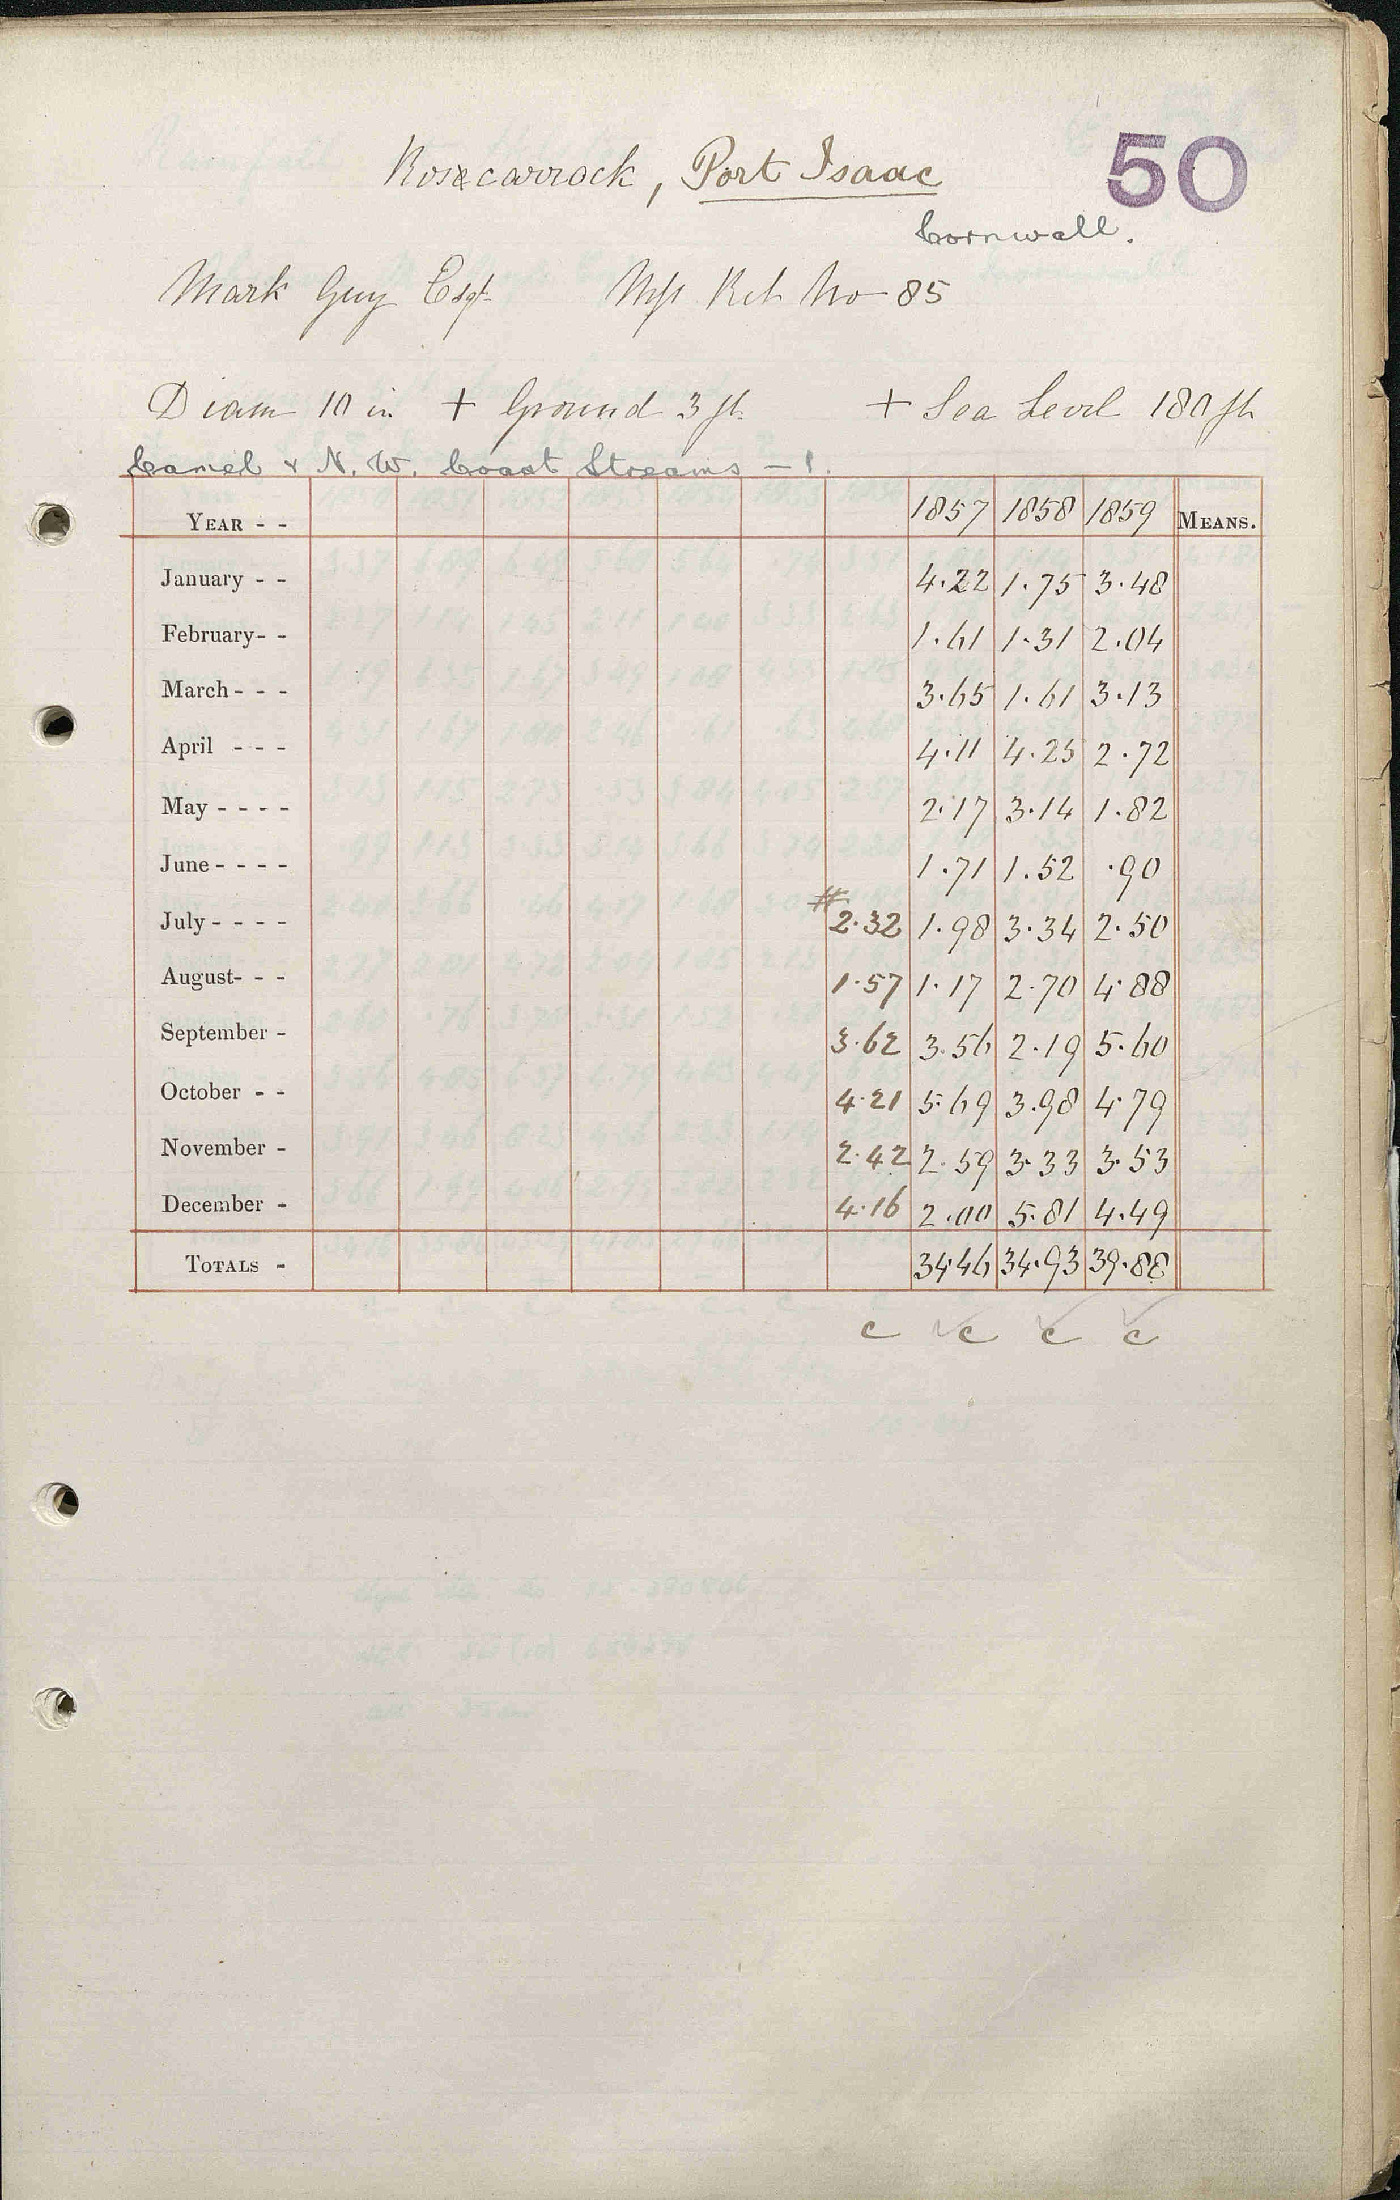 50
Rosecarrock, Port Isaac
Cornwall.
Mark Guy Esqr No 85
Diam 10 in + Ground 3 ft. + Sea Level 180 ft
Camel & N. W. Coast Streams — 1.
YEAR - - 1857 1858 1859 MEANS.
January - - 4.22 1.75 3.48
February- - 1.61 1.31 2.04
March - - - 3.65 1.61 3.13
April - - - 4.11 4.25 2.72
May - - - - 2.17 3.14 1.82
June - - - - 1.71 1.52 .90
#
July - - - - 2.32 1.98 3.34 2.50
August- - - 1.57 1.17 2.70 4.88
September - 3.62 3.56 2.19 5.60
October - - 4.21 5.69 3.98 4.79
November - 2.42 2.59 3.33 3.53
December - 4.16 2.00 5.81 4.49
TOTALS - 34.46 34.93 39.88
c c c c